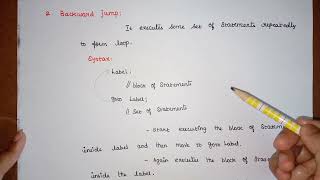 2. Backward jump:
It executes some set of statements repeatedly
to form loop.
Syntax:
Label:
// block of statements
goto Label;
// Set of statements
- Start executing the block of
inside label and then move to goto Label.
- Again executes the block of
inside the label.